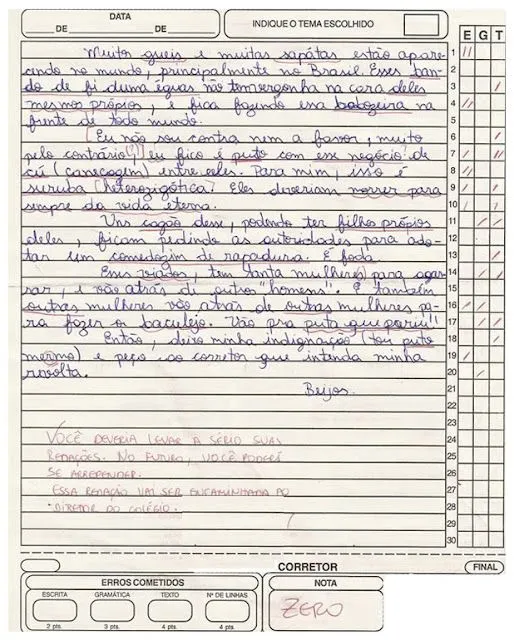 DATA
DE DE
INDIQUE O TEMA ESCOLHIDO
E G T
1 Muitos gueis e muitas sapátas estão apare-
2 cendo no mundo, principalmente no Brasil. Esses ban-
3 do de fi duma éguas não tem vergonha na cara deles
4 mesmos própios, e fica fazendo essa babozeira na
5 frente de todo mundo.
6 Eu não sou contra nem a favor, muito
7 pelo contrário(?), eu fico é puto com esse negócio de
8 cú (sanecagem) entre eles. Para mim, isso é
9 suruba (heterozigótica). Eles deveriam morrer para
10 sempre da vida eterna.
11 Uns cagão desse, podendo ter filhos própios
12 deles, ficam pedindo as autoridades para ado-
13 tar um comedozim de rapadura. É foda.
14 Esses viados, tem tanta mulheres para agar-
15 rar, e vão atrás de outros "homens". E também
16 outras mulheres vão atrás de outras mulheres pa-
17 ra fazer o baculejo. Vão pra puta que pariu!!
18 Então, deixo minha indignação (tou puto
19 mermo) e peço ao corretor que intenda minha
20 revolta.
21 Beijos.
22
23
24 VOCÊ DEVERIA LEVAR A SÉRIO SUAS
25 REDAÇÕES. NO FUTURO, VOCÊ PODERÁ
26 SE ARREPENDER.
27 ESSA REDAÇÃO VAI SER ENCAMINHADA AO
28 DIRETOR DO COLÉGIO.
29
30
CORRETOR
FINAL
ERROS COMETIDOS
ESCRITA GRAMÁTICA TEXTO Nº DE LINHAS
2 pts. 3 pts. 4 pts. 4 pts.
NOTA
ZERO